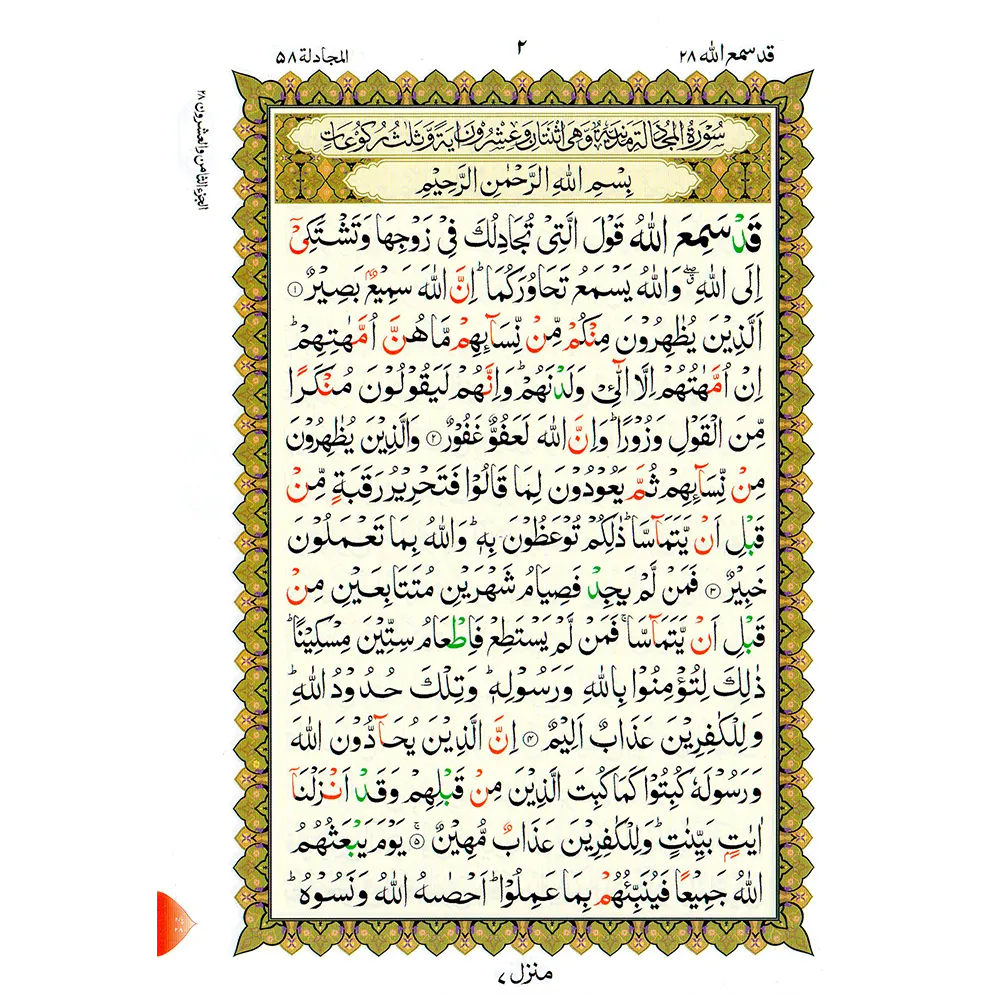 قد سمع الله ۲۸
۲
المجادلة ۵۸
الجزء الثامن والعشرون ۲۸
سُوْرَةُ الْمُجَادَلَةِ مَدَنِيَّةٌ وَّهِيَ اثْنَتَانِ وَعِشْرُوْنَ اٰيَةً وَّثَلٰثُ رُكُوْعَاتٍ
بِسْمِ اللهِ الرَّحْمٰنِ الرَّحِيْمِ
قَدْ سَمِعَ اللهُ قَوْلَ الَّتِيْ تُجَادِلُكَ فِيْ زَوْجِهَا وَتَشْتَكِيْٓ
اِلَى اللهِ ۖ وَاللهُ يَسْمَعُ تَحَاوُرَكُمَا ؕ اِنَّ اللهَ سَمِيْعٌۢ بَصِيْرٌ ۝۱
اَلَّذِيْنَ يُظٰهِرُوْنَ مِنْكُمْ مِّنْ نِّسَآئِهِمْ مَّا هُنَّ اُمَّهٰتِهِمْ ؕ
اِنْ اُمَّهٰتُهُمْ اِلَّا الّٰٓـِٔيْ وَلَدْنَهُمْ ؕ وَاِنَّهُمْ لَيَقُوْلُوْنَ مُنْكَرًا
مِّنَ الْقَوْلِ وَزُوْرًا ؕ وَاِنَّ اللهَ لَعَفُوٌّ غَفُوْرٌ ۝۲ وَالَّذِيْنَ يُظٰهِرُوْنَ
مِنْ نِّسَآئِهِمْ ثُمَّ يَعُوْدُوْنَ لِمَا قَالُوْا فَتَحْرِيْرُ رَقَبَةٍ مِّنْ
قَبْلِ اَنْ يَّتَمَآسَّا ؕ ذٰلِكُمْ تُوْعَظُوْنَ بِهٖ ؕ وَاللهُ بِمَا تَعْمَلُوْنَ
خَبِيْرٌ ۝۳ فَمَنْ لَّمْ يَجِدْ فَصِيَامُ شَهْرَيْنِ مُتَتَابِعَيْنِ مِنْ
قَبْلِ اَنْ يَّتَمَآسَّا ۚ فَمَنْ لَّمْ يَسْتَطِعْ فَاِطْعَامُ سِتِّيْنَ مِسْكِيْنًا ؕ
ذٰلِكَ لِتُؤْمِنُوْا بِاللهِ وَرَسُوْلِهٖ ؕ وَتِلْكَ حُدُوْدُ اللهِ ؕ
وَلِلْكٰفِرِيْنَ عَذَابٌ اَلِيْمٌ ۝۴ اِنَّ الَّذِيْنَ يُحَآدُّوْنَ اللهَ
وَرَسُوْلَهٗ كُبِتُوْا كَمَا كُبِتَ الَّذِيْنَ مِنْ قَبْلِهِمْ وَقَدْ اَنْزَلْنَآ
اٰيٰتٍۢ بَيِّنٰتٍ ؕ وَلِلْكٰفِرِيْنَ عَذَابٌ مُّهِيْنٌ ۝۵ۚ يَوْمَ يَبْعَثُهُمُ
اللهُ جَمِيْعًا فَيُنَبِّئُهُمْ بِمَا عَمِلُوْا ؕ اَحْصٰىهُ اللهُ وَنَسُوْهُ ؕ
پارہ ۲۸
منزل ۷